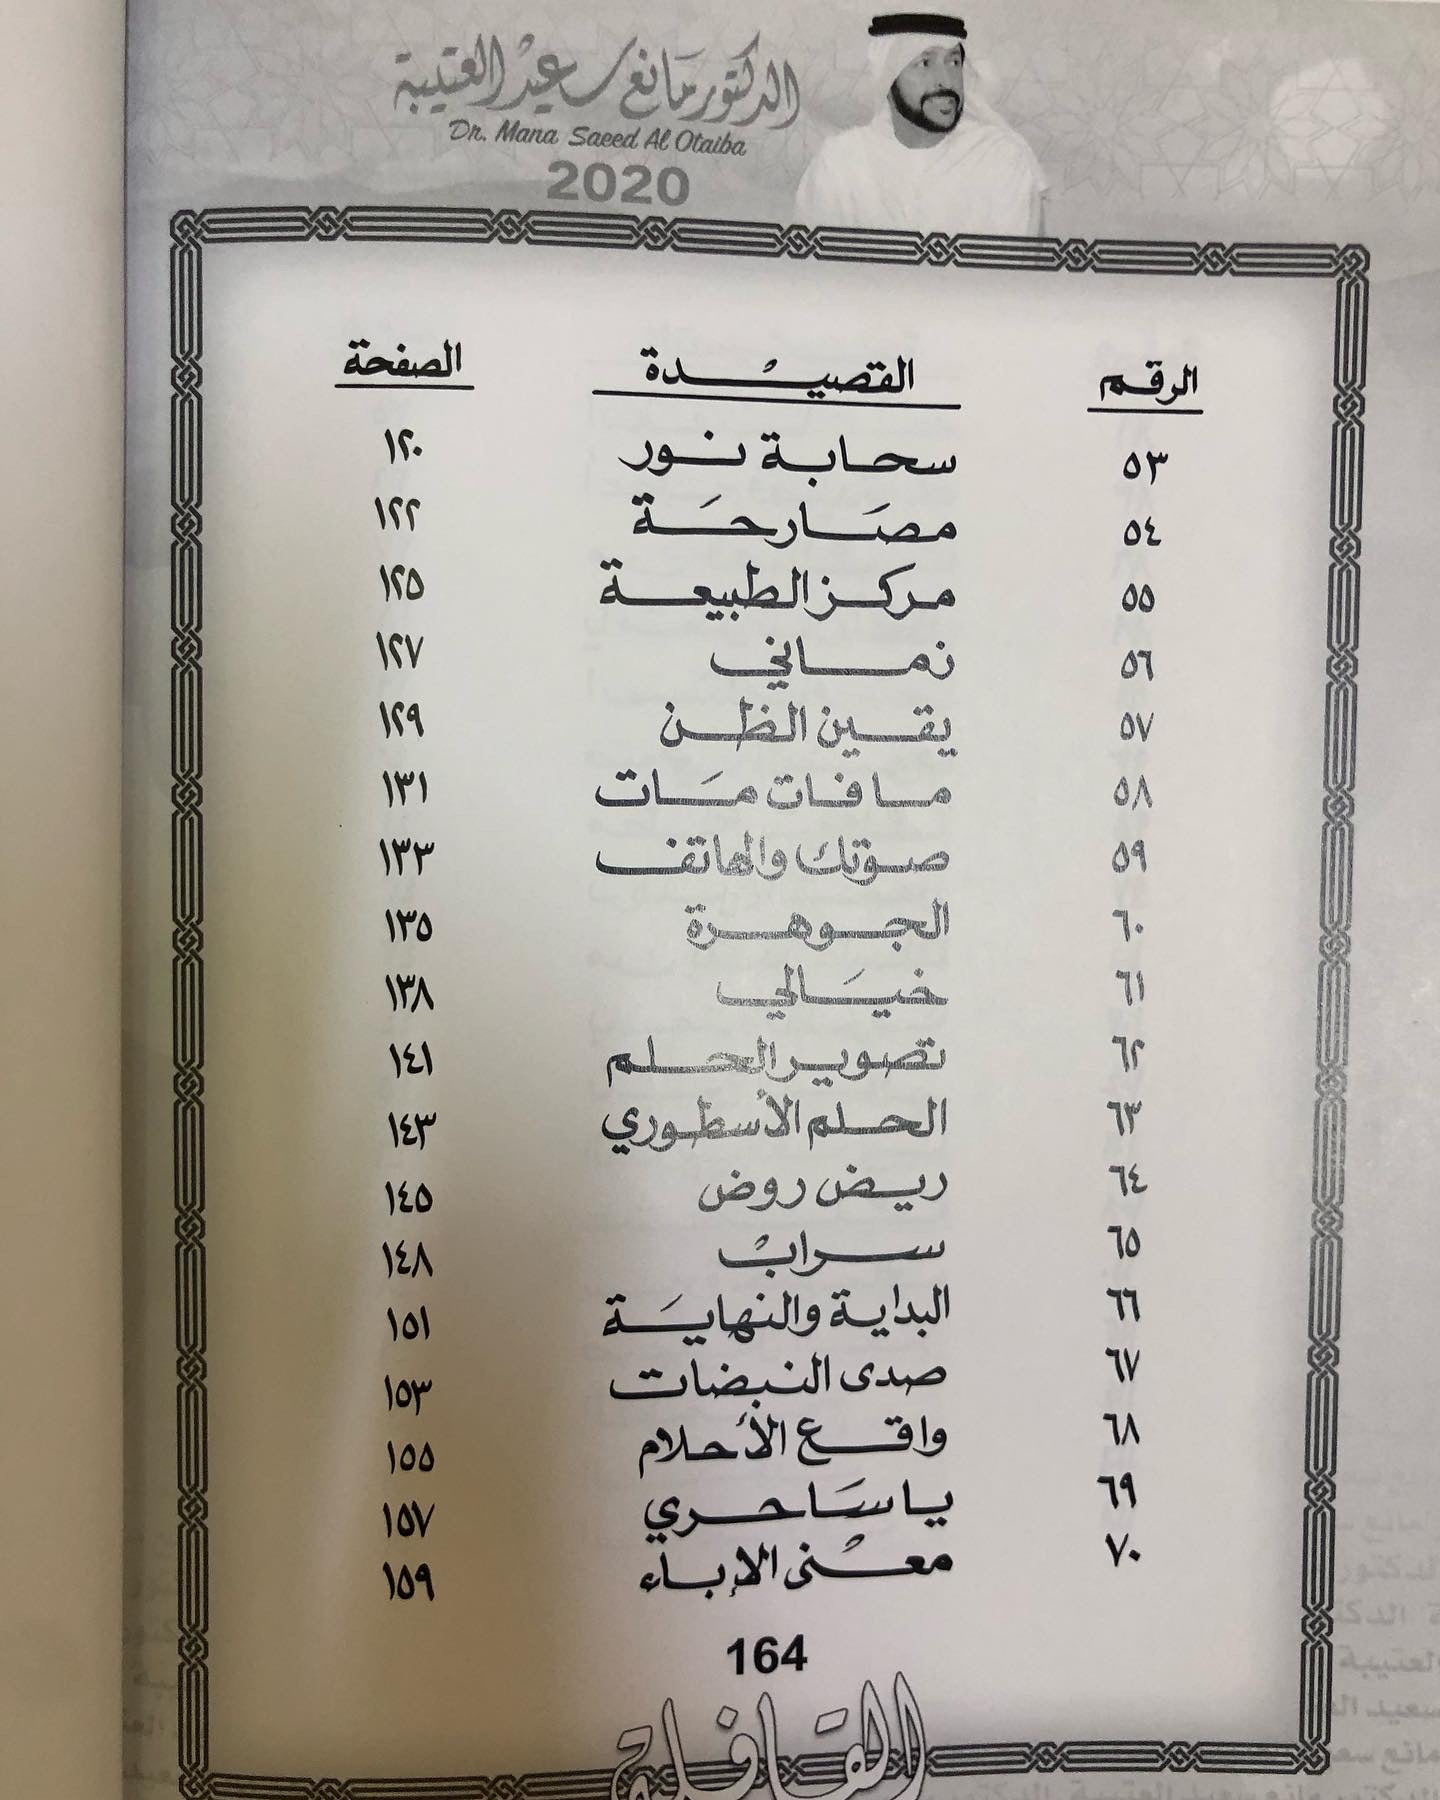 الدكتور مانع سعيد العتيبة
Dr. Mana Saeed Al Otaiba
2020
الرقم القصيدة الصفحة
٥٣ سحابة نور ١٢٠
٥٤ مصَارحَة ١٢٢
٥٥ مركز الطبيعة ١٢٥
٥٦ زماني ١٢٧
٥٧ يقين الظن ١٢٩
٥٨ ما فات مَات ١٣١
٥٩ صوتك والهاتف ١٣٣
٦٠ الجوهرة ١٣٥
٦١ خيَالي ١٣٨
٦٢ تصوير الحلم ١٤١
٦٣ الحلم الأسطوري ١٤٣
٦٤ ريض روض ١٤٥
٦٥ سرابْ ١٤٨
٦٦ البداية والنهايَة ١٥١
٦٧ صدى النبضات ١٥٣
٦٨ واقع الأحلام ١٥٥
٦٩ يا سَاحري ١٥٧
٧٠ معْنى الإباء ١٥٩
164
القافلة